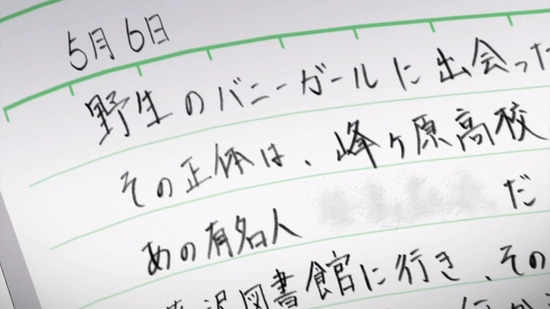 5月6日
野生のバニーガールに出会った
その正体は、峰ヶ原高校
あの有名人 だ
藤沢図書館に行き、その